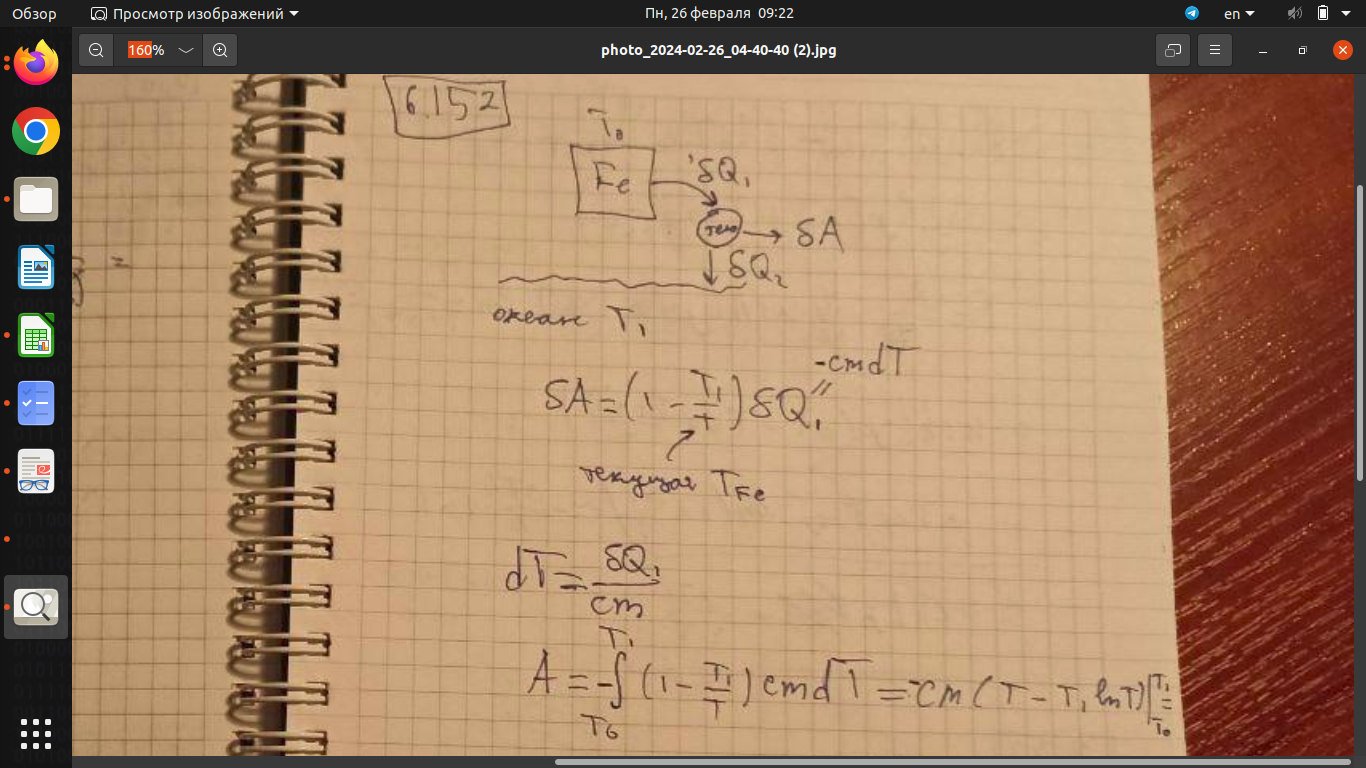 Обзор
Просмотр изображений
Пн, 26 февраля 09:22
en
160%
photo_2024-02-26_04-40-40 (2).jpg
6.152
T₀
Fe
δQ₁
тело
δA
δQ₂
океан T₁
-cmdT
δA = (1 - T₁/T) δQ₁
текущая T_Fe
dT = δQ₁/cm
A = -∫_{T₀}^{T₁} (1 - T₁/T) cmdT = -cm (T - T₁ lnT)|_{T₀}^{T₁} =
=